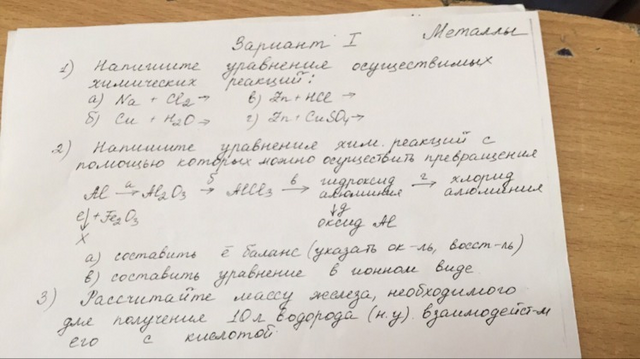 Вариант I Металлы
1) Напишите уравнения осуществимых
химических реакций:
а) Na + Cl2 → в) Zn + HCl →
б) Cu + H2O → г) Zn + CuSO4 →
2) Напишите уравнения хим. реакций с
помощью которых можно осуществить превращения
Al —а→ Al2O3 —б→ AlCl3 —в→ гидроксид алюминия —г→ хлорид алюминия
е↓ + Fe2O3 ↓д
X оксид Al
а) составить ē баланс (указать ок-ль, восст-ль)
в) составить уравнение в ионном виде
3) Рассчитайте массу железа, необходимого
для получения 10л водорода (н.у) взаимодейст-м
его с кислотой.